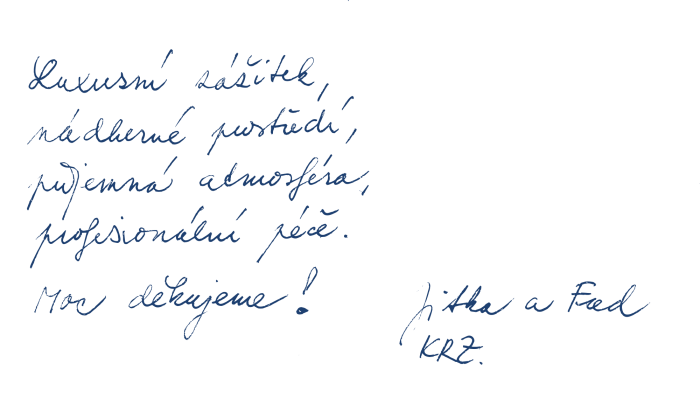 Luxusní zážitek,
nádherné prostředí,
příjemná atmosféra,
profesionální péče.
Moc děkujeme!
Jitka a Fred
KRZ.